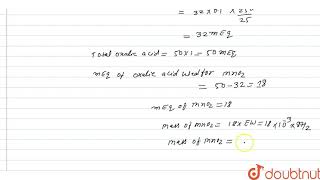 = 32×0.1 × 250/25
= 32 mEq
Total oxalic acid = 50×1 = 50 mEq
mEq of oxalic acid used for mno₂
= 50-32 = 18
mEq of mno₂ = 18
mass of mno₂ = 18 × EW = 18 × 10⁻³ × 87/2
mass of mno₂ =
doubtnut